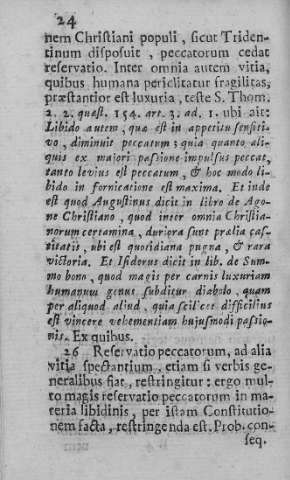 24
nem Christiani populi, sicut Triden-
tinum disposuit, peccatorum cedat
reservatio. Inter omnia autem vitia,
quibus humana periclitatur fragilitas,
præstantior est luxuria, teste S. Thom.
2. 2. quæst. 154. art. 3. ad. 1. ubi ait:
Libido autem, quæ est in appetitu sensiti-
vo, diminuit peccatum; quia quanto ali-
quis ex majori passione impulsus peccat,
tanto levius est peccatum, & hoc modo li-
bido in fornicatione est maxima. Et inde
est quod Augustinus dicit in libro de Ago-
ne Christiano, quod inter omnia Christia-
norum certamina, duriora sunt prælia cas-
titatis, ubi est quotidiana pugna, & rara
victoria. Et Isidorus dicit in lib. de Sum-
mo bono, quod magis per carnis luxuriam
humanum genus subditur diabolo, quam
per aliquod aliud, quia scilicet difficilius
est vincere vehementiam hujusmodi passio-
nis. Ex quibus.
26 Reservatio peccatorum, ad alia
vitia spectantium, etiam si verbis ge-
neralibus fiat, restringitur: ergo mul-
to magis reservatio peccatorum in ma-
teria libidinis, per istam Constitutio-
nem facta, restringenda est. Prob. con-
seq.